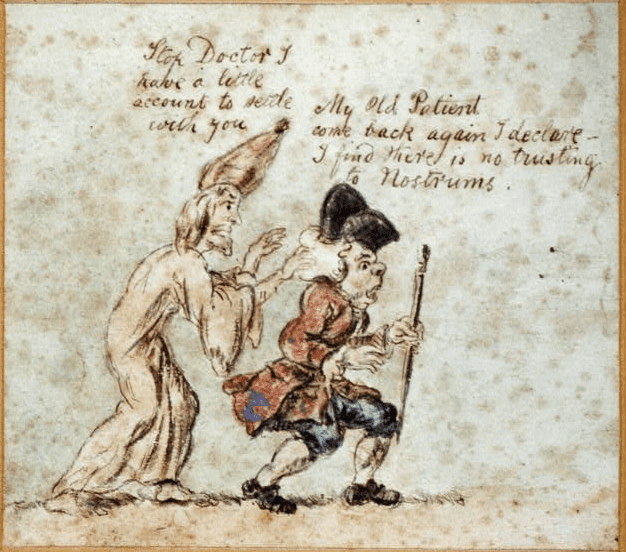 Stop Doctor I
have a little
account to settle
with you
My Old Patient
come back again I declare -
I find there is no trusting
to Nostrums.